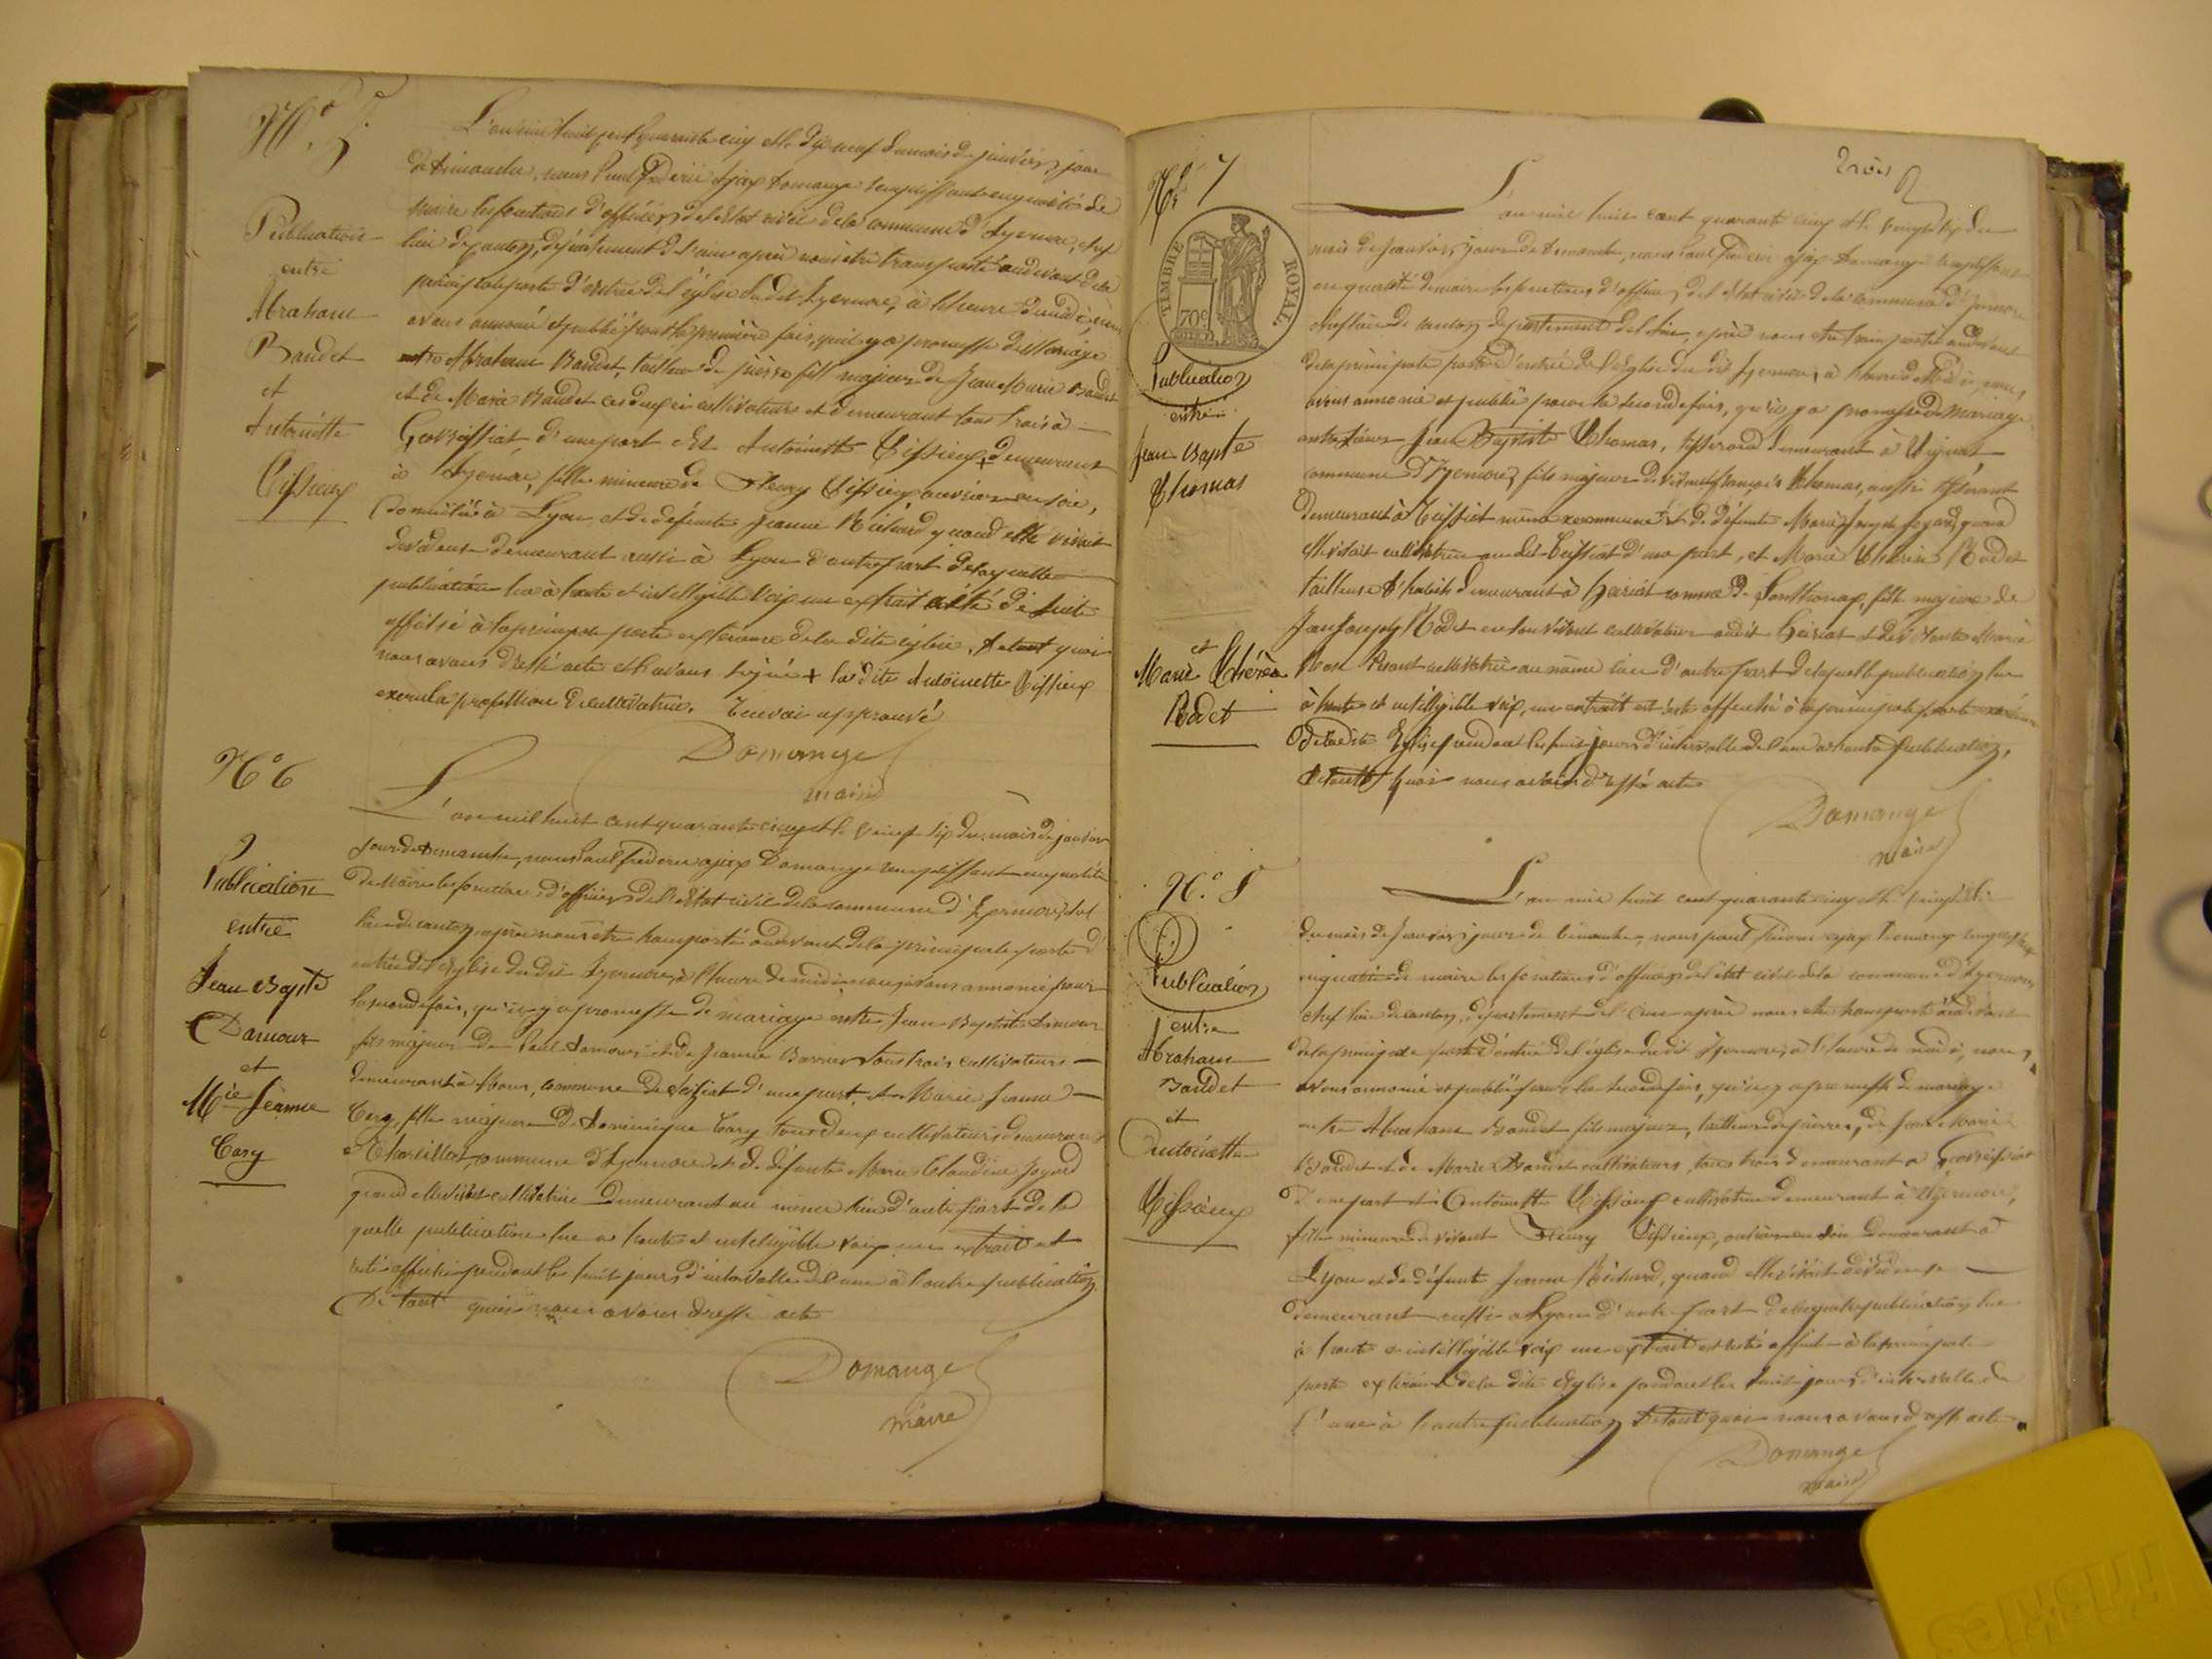 N.° 5
Publication
entre
Abraham
Baudet
et
Antoinette
Tissieux
L'an mil huit cent quarante cinq et le dix neuf du mois de janvier, jour
de dimanche, nous Paul Frédéric Ajax Domange remplissant en qualité de
maire les fonctions d'officier de l'état civil de la commune d'Izernore, chef
lieu de canton, département de l'ain après nous être transporté au devant de la
principale porte d'entrée de l'église du dit Izernore, à l'heure de midi, nous
avons annoncé et publié pour la première fois, qu'il y a promesse de Mariage
entre Abraham Baudet, tailleur de pierre fils majeur de Jean Marie Baudet
et de Marie Baudet ces deux ci cultivateurs et demeurant tous trois à
d'une part et Antoinette Tissieux + demeurant
à Izernore, fille mineure de Fleury Tissieux ouvrier en soie,
domicilié à Lyon et de défunte Jeanne Richard quand elle vivait
dévideuse demeurant aussi à Lyon d'autre part de laquelle
publication lue à haute et intelligible voix un extrait a été de suite
affiché à la principale porte extérieure de la dite église, de tout quoi
nous avons dressé acte et avons signé + la dite Antoinette Tissieux
exerce la profession de cultivatrice. Renvoi approuvé
Domange
maire
N° 6
Publication
entre
Jean Bapte
Damour
et
Mie Jeanne
Cary
L'an mil huit cent quarante cinq et le vingt six du mois de janvier
jour de Dimanche, nous Paul frédéric ajax Domange remplissant en qualité
de Maire les fonctions d'officier de l'Etat civil de la commune d'Izernore, chef
lieu de canton, après nous être transporté au devant de la principale porte d'
entrée de l'église du dit Izernore, à l'heure de midi nous avons annoncé pour
la seconde fois, qu'il y a promesse de mariage entre Jean Baptiste Damour
fils majeur de Paul Damour et de Jeanne tous trois cultivateurs
demeurant à commune de d'une part, et Marie Jeanne
Cary, fille majeure de Dominique Cary tous deux cultivateurs demeurant
à Charillat, commune d'Izernore et de défunte Marie Claudine
quand elle vivait cultivatrice demeurant au même lieu d'autre part de la
quelle publication lue à haute et intelligible voix un extrait est
resté affiché pendant les huit jours d'intervalle de l'une à l'autre publication
De tout quoi nous avons dressé acte
Domange
maire
trois
N° 7
TIMBRE ROYAL
70c
Publication
entre
Jean Bapte
Thomas
et
Marie Thérèse
Rodet
L'an mil huit cent quarante cinq et le vingt six du
mois de janvier, jour de dimanche, nous Paul frédéric ajax Domange remplissant
en qualité de maire les fonctions d'officier de l'état civil de la commune d'Izernore
chef lieu de canton département de l'ain, après nous être transporté au devant
de la principale porte d'entrée de l'église du dit Izernore, à l'heure de Midi, nous
avons annoncé et publié pour la seconde fois, qu'il y a promesse de mariage
entre sieur Jean Baptiste Thomas, tisserand demeurant à
commune d'Izernore, fils majeur de vivant françois Thomas, aussi tisserant
demeurant à même commune et de défunte Marie Joseph quand
elle vivait cultivatrice au dit d'une part, et Marie Thérèse Rodet
tailleuse d'habits demeurant à Heiriat comme de fille majeure de
Jean Joseph Rodet en son vivant cultivateur au dit Heiriat et de vivante Marie
vivant cultivatrice au même lieu d'autre part de laquelle publication lue
à haute et intelligible voix, un extrait est resté affiché à la principale porte extérieure
de la dite Eglise pendant les huit jours d'intervalle de l'une à l'autre publication,
de tout quoi nous avons dressé acte
Domange
maire
N.° 8
Publication
entre
Abraham
Baudet
et
Antoinette
Tissieux
L'an mil huit cent quarante cinq et le vingt six
du mois de Janvier jour de dimanche, nous paul frédéric ajax Domange remplissant
en qualité de maire les fonctions d'officier de l'état civil de la commune d'Izernore
chef lieu de canton, département de l'ain après nous être transporté au devant
de la principale porte d'entrée de l'église du dit Izernore, à l'heure de midi, nous
avons annoncé et publié pour la seconde fois, qu'il y a promesse de mariage
entre Abraham Baudet fils majeur, tailleur de pierre, de Jean Marie
Baudet et de Marie Baudet cultivateurs, tous trois demeurant à
d'une part et Antoinette Tissieux cultivatrice demeurant à Izernore,
fille mineure de vivant Fleury Tissieux, ouvrier en soie demeurant à
Lyon et de défunte Jeanne Richard, quand elle vivait dévideuse
demeurant aussi à Lyon d'autre part de laquelle publication lue
à haute et intelligible voix un extrait est resté affiché à la principale
porte extérieure de la dite Eglise pendant les huit jours d'intervalle de
l'une à l'autre publication De tout quoi nous avons dressé acte
Domange
maire